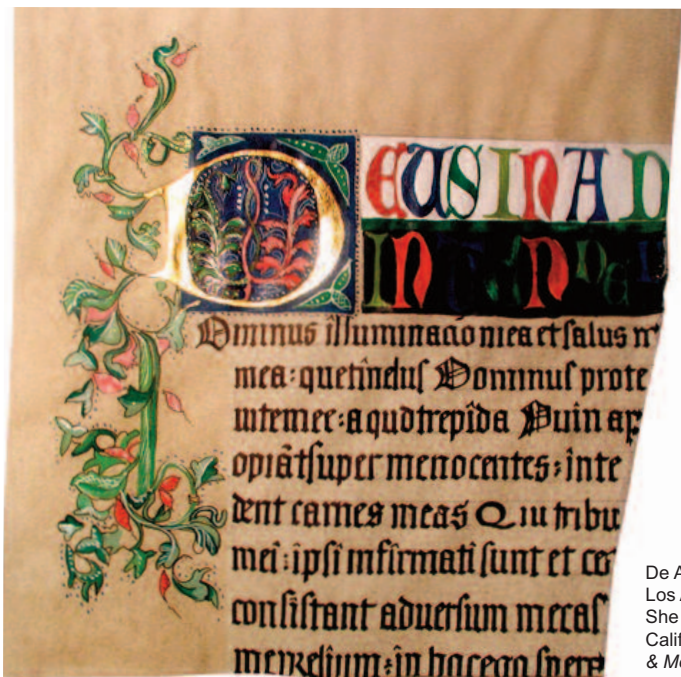 DEUS IN AD
Dminus illuminacio mea et salus m
mea: quetimdus Dominus prote
mtemee: a quo trepida Duin ap
opiãt super menocentes: inte
dent carnes meas Qiu tribu
mei: ipsi infirmati sunt et ce
consistant aduersum mecas
in hocego spere
De A
Los A
She
Calif
& Mo